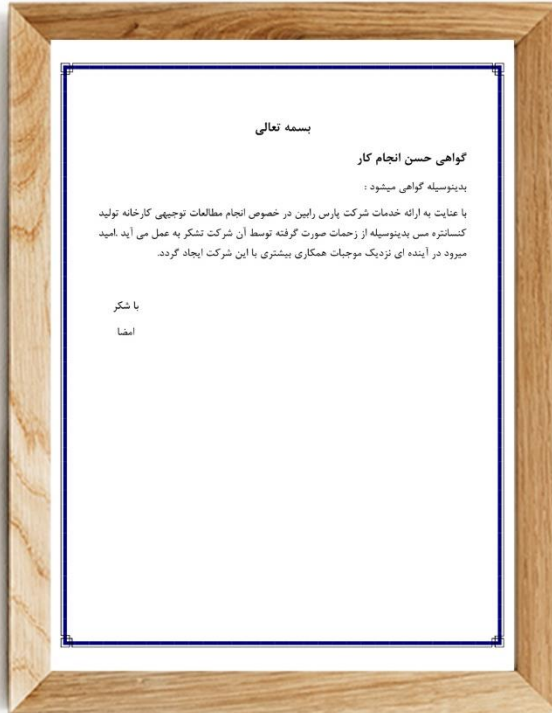 بسمه تعالی
گواهی حسن انجام کار
بدینوسیله گواهی میشود :
با عنایت به ارائه خدمات شرکت پارس رابین در خصوص انجام مطالعات توجیهی کارخانه تولید
کنسانتره مس بدینوسیله از زحمات صورت گرفته توسط آن شرکت تشکر به عمل می آید .امید
میرود در آینده ای نزدیک موجبات همکاری بیشتری با این شرکت ایجاد گردد.
با شکر
امضا